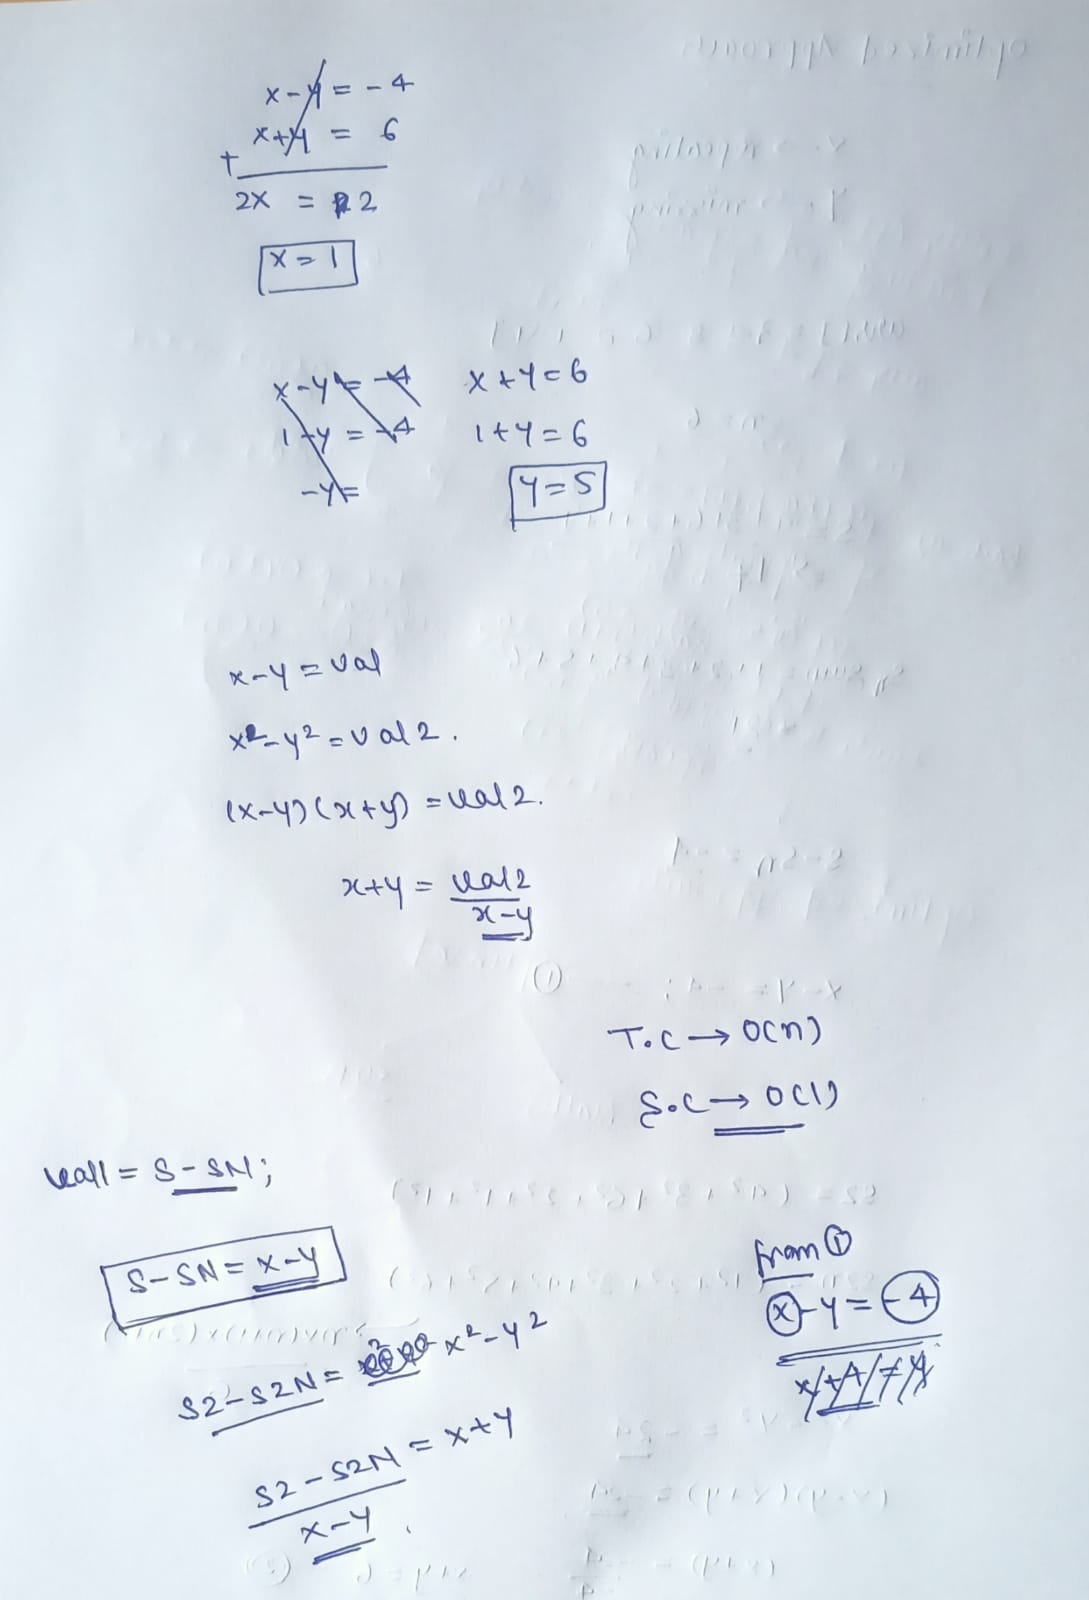 x-y = -4
x+y = 6
+
2x = 2
x = 1
x-y = -4
1-y = -4
-y=
x+y=6
1+y=6
y=5
x-y = val
x²-y² = val2.
(x-y)(x+y) = val2.
x+y = val2
x-y
T.C → O(n)
S.C → O(1)
val1 = S-SN;
S-SN = x-y
S2-S2N = x²-y²
S2-S2N = x+y
x-y
from ①
x-y = -4